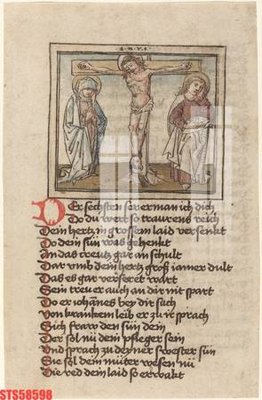 I·N·R·I
Der sechsten ser erman ich dich
Do du wert so traurens reich
Dein hertz in grossem laid versenkt
Do dein sün was gehenkt
An das creutz gar an schult
Dar vmb dein hertz groß iamer dult
Das es gar verseret wart
Sein treu er auch an dir nit spart
Do er iohānes bey dir sach
Von krankem leib er zu ir sprach
Sich fraw den sün dein
Der sol nü dein pfleger sein
Vnd sprach zu deyner swester sün
Sie sol dein muter wesen nü
Die red dein laid so
STS58598